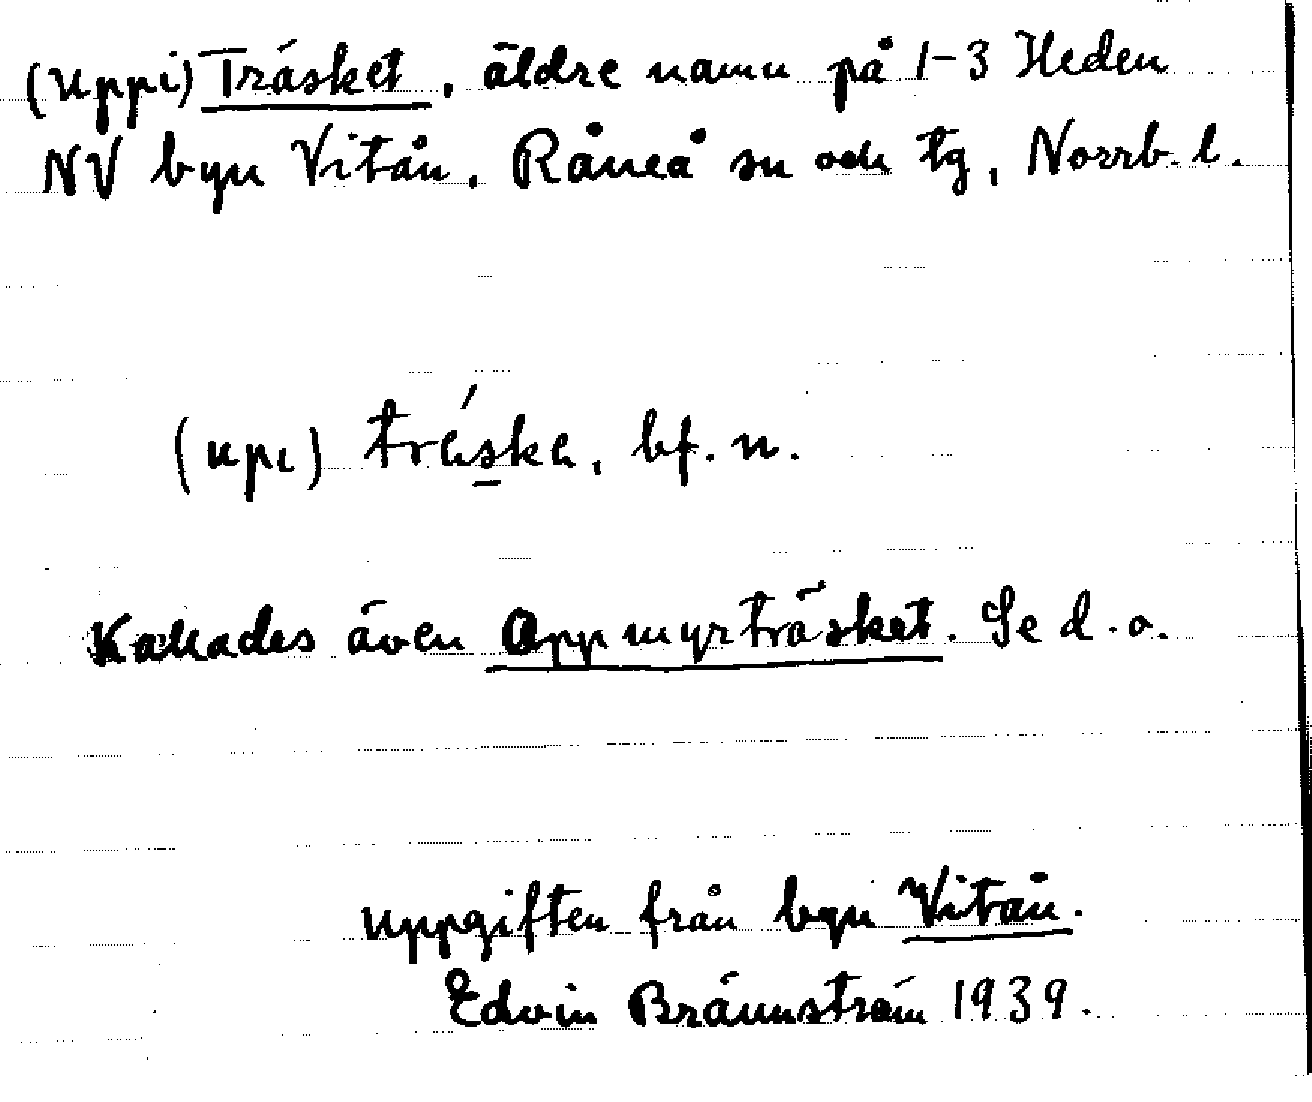 (uppi) Träsket, äldre namn på 1-3 Heden
NV byn Vitån, Råneå sn och tg, Norrb. l.
(upi) träska, bf. n.
Kallades även Oppmyrträsket. Se d. o.
uppgiften från byn Vitån.
Edvin Brännström 1939.